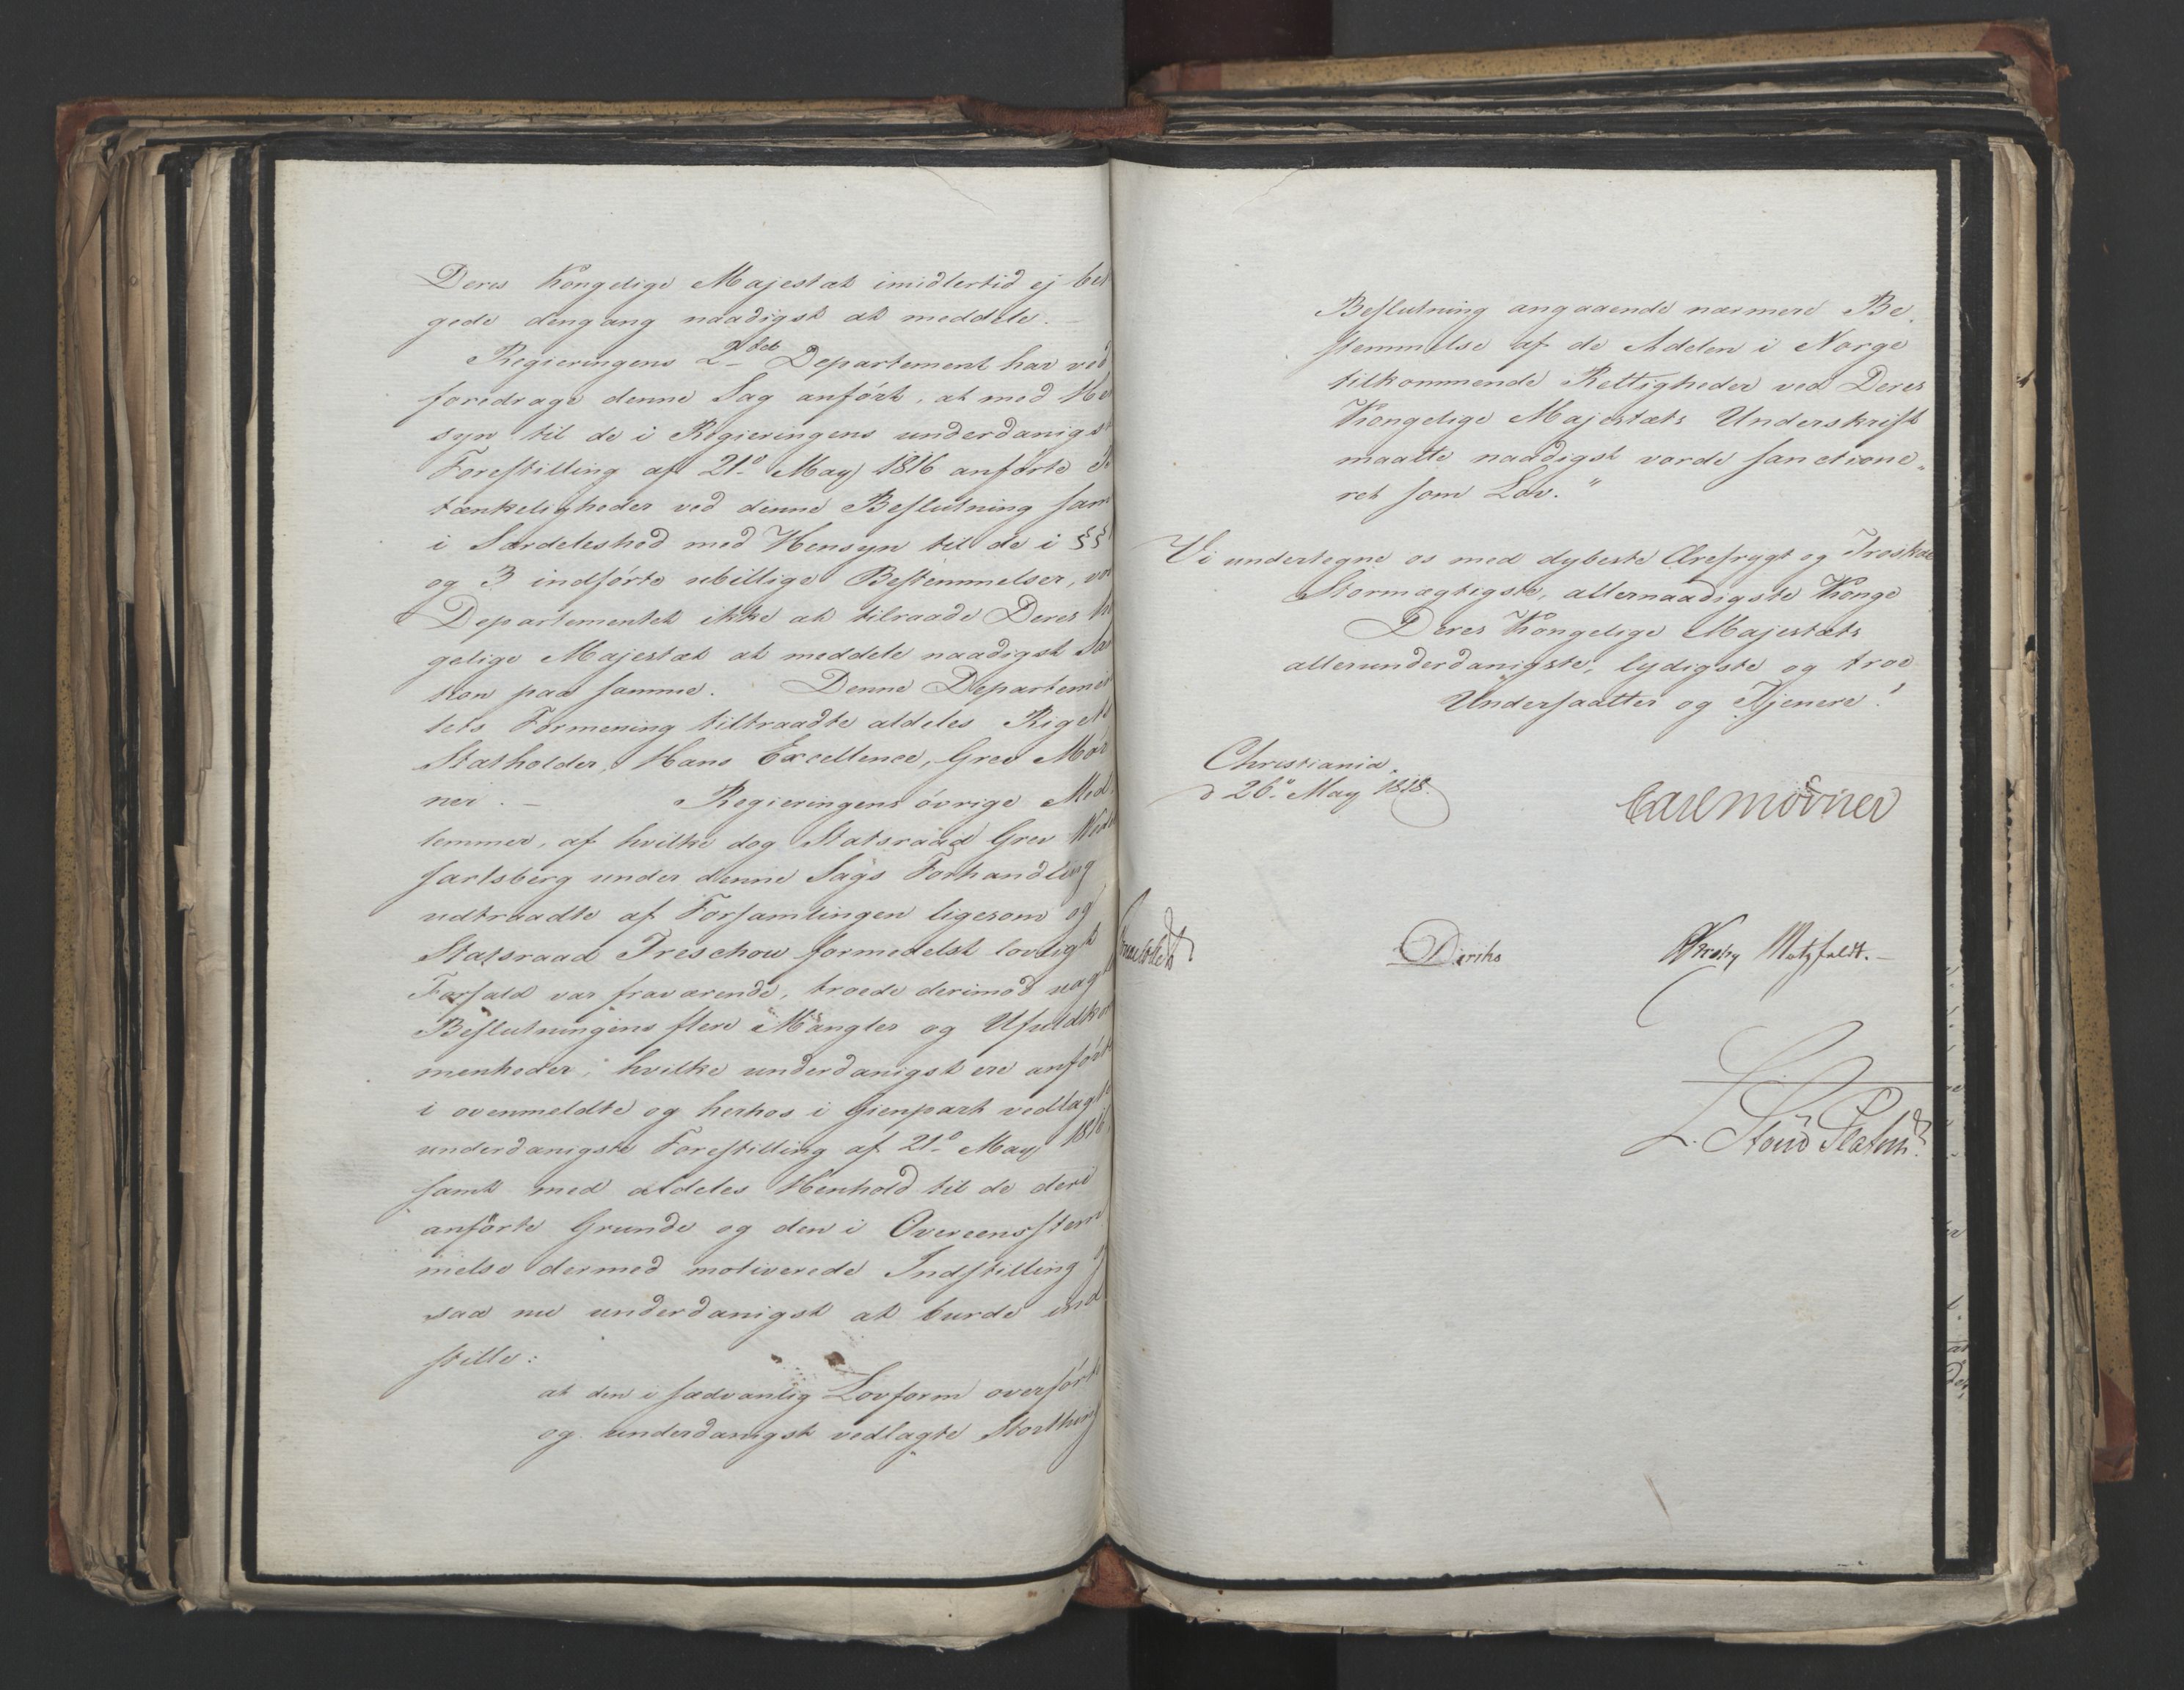 Deres Kongelige Majestæt imidlertid ej be
gede dengang naadigst at meddele.
Regieringens 2det Departement har ved
foredrage denne Sag anført, at med He
syn til de i Regieringens underdanigst
Forestilling af 21de May 1816 anførte
tænkeligheder ved denne Beslutning sam
i Særdeleshed med Hensyn til de i §§
og 3 indførte ubillige Bestemmelser,
Departementet ikke at tilraade Deres
gelige Majestæt at meddele naadigst San
tion paa samme. Denne Departemen
tets Formening tiltraadte aldeles Rigets
Statholder, Hans Excellence, Grev Mör
ner. — Regieringens øvrige Med
lemmer, af hvilke dog Statsraad Grev Wede
Jarlsberg under denne Sags Forhandling
udtraadte af Forsamlingen ligesom og
Statsraad Treschow formedelst lovligt
Forfald var fraværende, troede derimod uagt
Beslutningens flere Mangler og Ufuldkom
menheder, hvilke underdanigst ere anført
i ovenmeldte og herhos i Gienpart vedlagte
underdanigste Forestilling af 21de May 1816,
samt med aldeles Henhold til de deri
anførte Grunde og den i Overeensstem
melse dermed motiverede Indstilling
saa nu underdanigst at burde ind
stille:
at den i sædvanlig Lovform overført
og underdanigst vedlagte Storthing
Beslutning angaaende nærmere Be
stemmelse af de Adelen i Norge
tilkommende Rettigheder ved Deres
Kongelige Majestæts Underskrift
maatte naadigst vorde sanctione„
ret som Lov."
Vi undertegne os med dybeste Ærefrygt og Troskab
Stormægtigste, allernaadigste Konge
Deres Kongelige Majestæts
allerunderdanigste, lydigste og troe
Undersaatter og Tjenere!
Christiania
d 26de May 1818.
Carl Mörner
Diriks
Krohg Motzfeldt. —
L. Stoud Platou